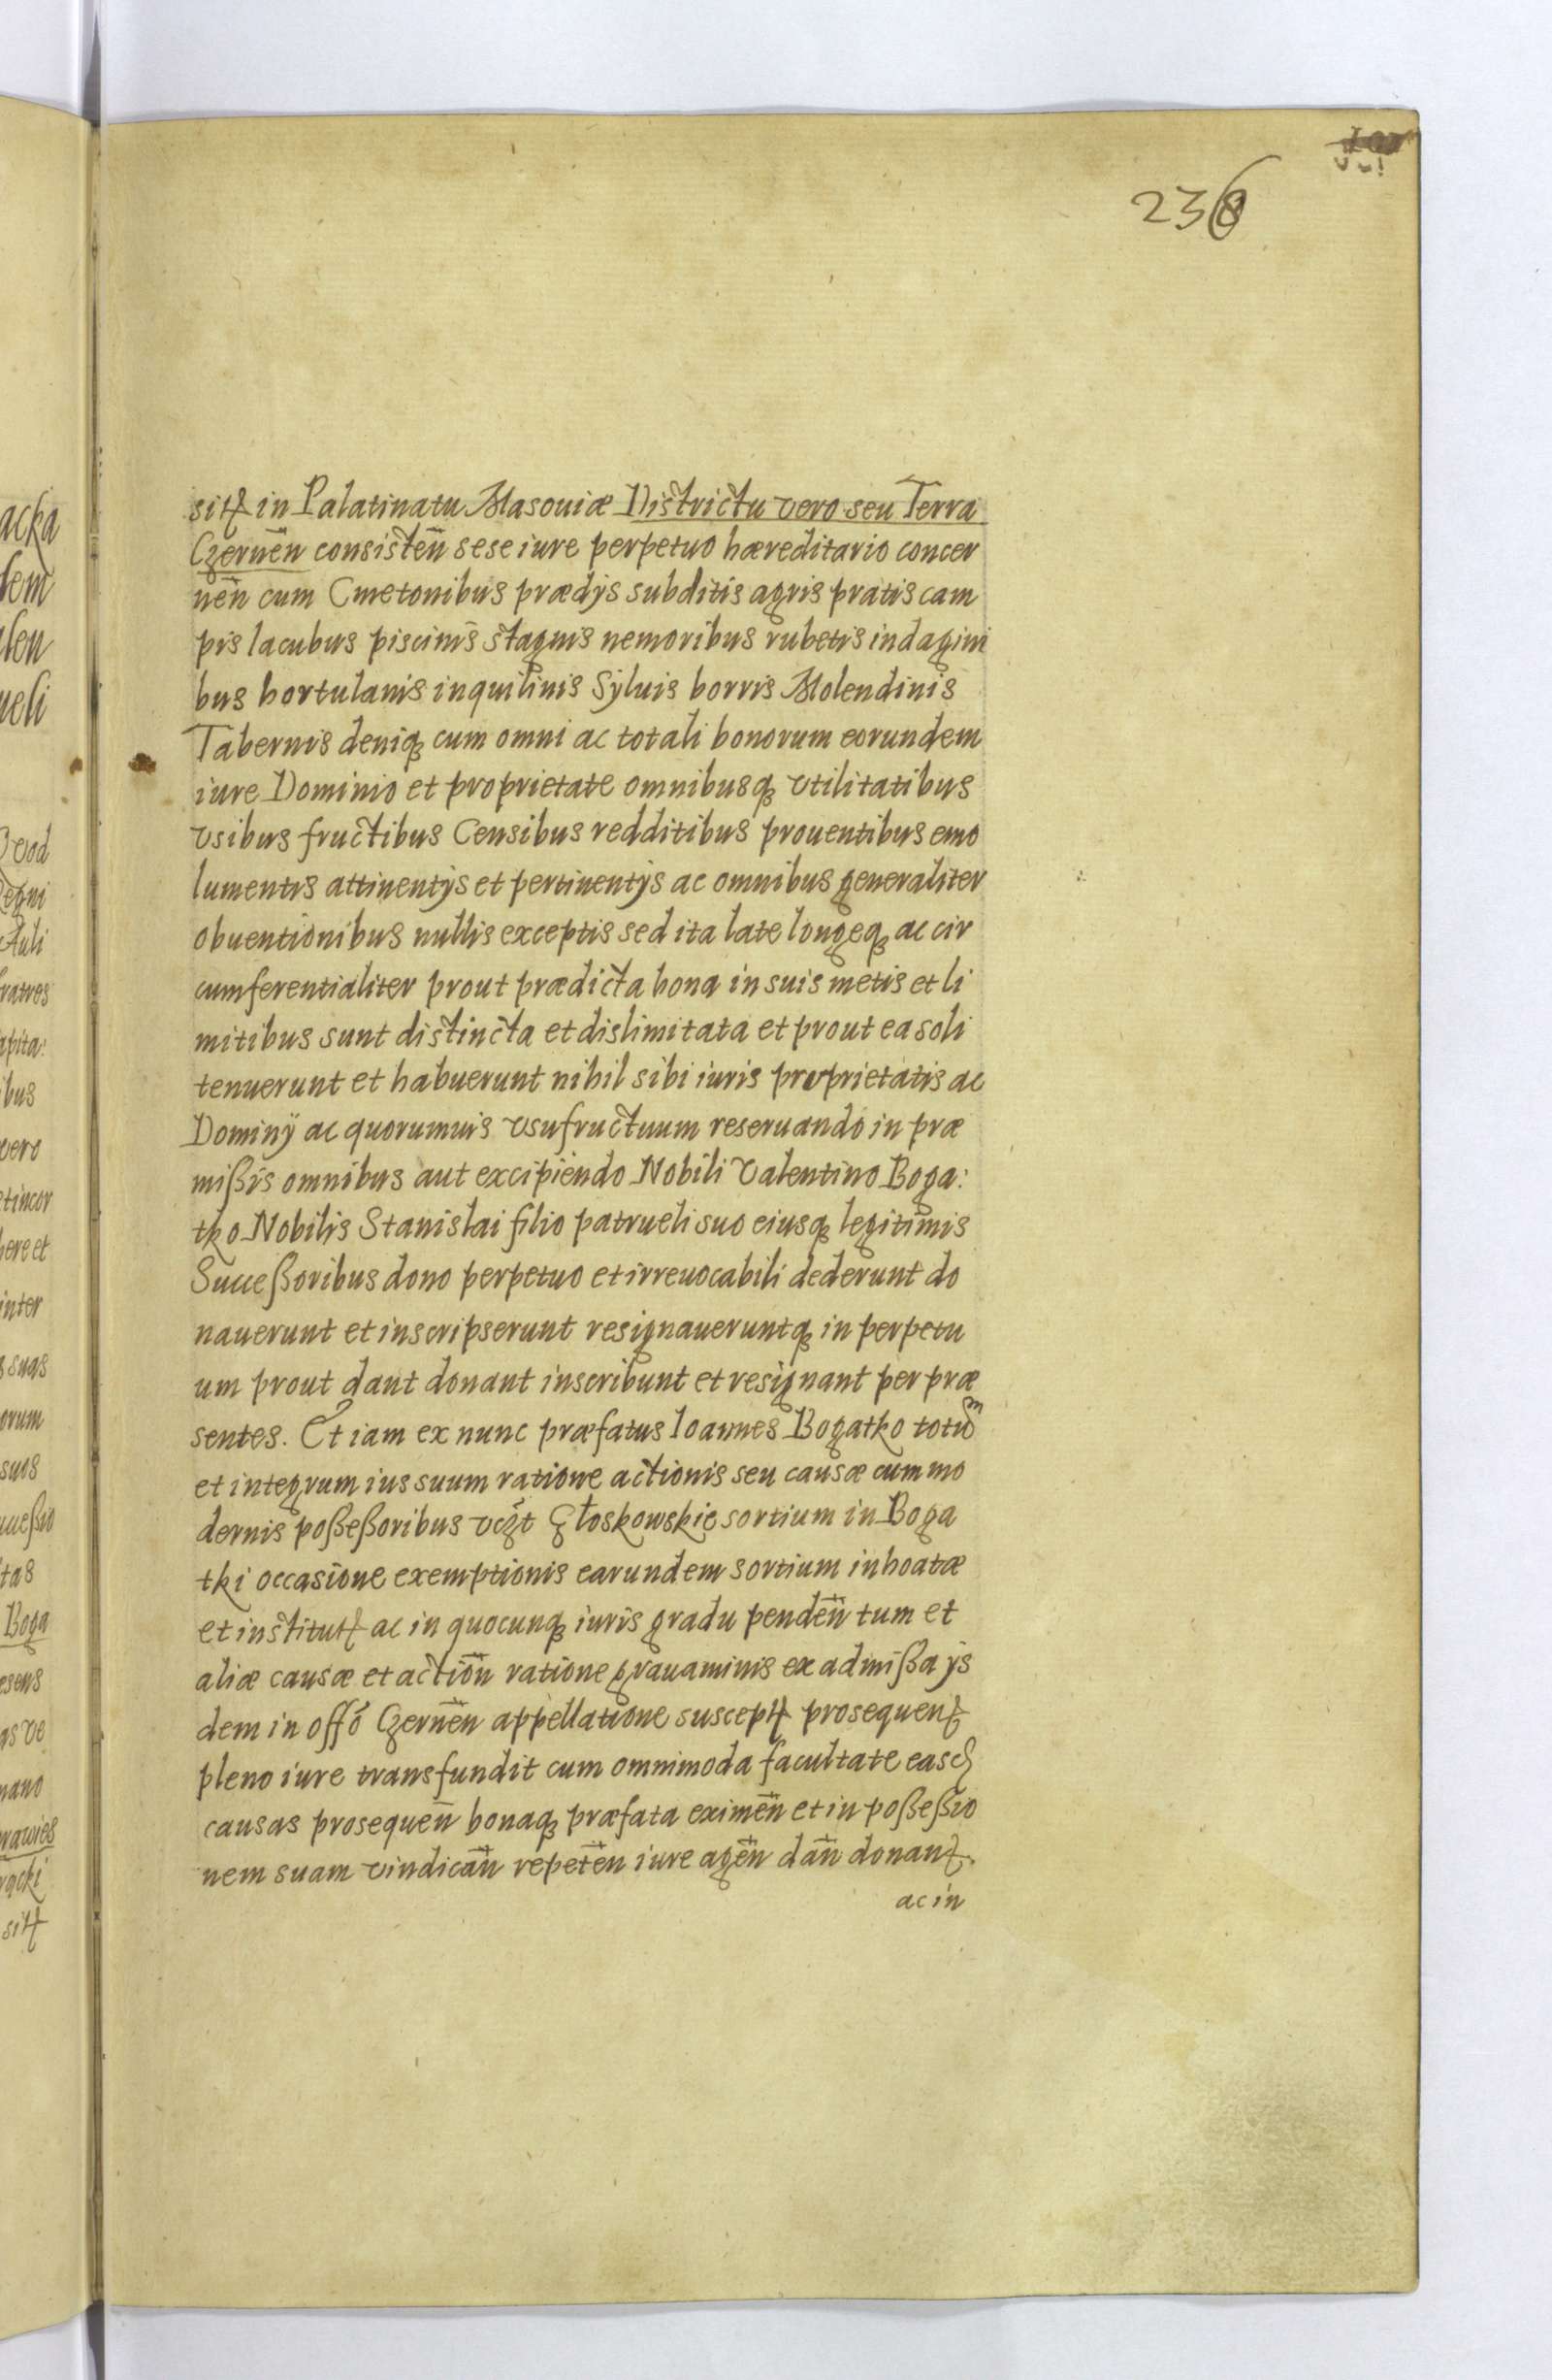 236
sitꝭ in Palatinatu Masouiæ Districtu vero seu Terra
Czernen̄ consisten̄ sese iure perpetuo hæreditario concer
nen̄ cum Cmetonibus prædijs subditis agris pratis cam
pis lacubus piscinis stagnis nemoribus rubetis indagini
bus hortulanis inquilinis Syluis borris Molendinis
Tabernis deniqꝫ cum omni ac totali bonorum eorundem
iure Dominio et proprietate omnibusqꝫ vtilitatibus
vsibus fructibus Censibus redditibus prouentibus emo
lumentis attinentijs et pertinentijs ac omnibus generaliter
obuentionibus nullis exceptis sed ita late longeqꝫ ac cir
cumferentialiter prout prædicta bona in suis metis et li
mitibus sunt distincta et dislimitata et prout ea soli
tenuerunt et habuerunt nihil sibi iuris proprietatis ac
Dominÿ ac quorumuis vsufructuum reseruando in præ
mißis omnibus aut excipiendo Nobili Valentino Boga:
tko Nobilis Stanislai filio patrueli suo eiusqꝫ legitimis
Succeßoribus dono perpetuo et irreuocabili dederunt do
nauerunt et inscripserunt resignaueruntqꝫ in perpetu
um prout dant donant inscribunt et resignant per præ
sentes. Et iam ex nunc præfatus Ioannes Bogatko totum
et integrum ius suum ratione actionis seu causæ cum mo
dernis poßeßoribus vczt Głoskowskie sortium in Boga
tki occasione exemptionis earundem sortium inhoatæ
et institutꝭ ac in quocunqꝫ iuris gradu penden̄ tum et
aliæ causæ et action̄ ratione grauaminis ex admißa ijs
dem in offo Czernen̄ appellatione susceptꝭ prosequenꝭ
pleno iure transfundit cum omnimoda facultate easd
causas prosequen̄ bonaqꝫ præfata eximen̄ et in poßeßio
nem suam vindican̄ repeten̄ iure agen̄ dan̄ donanꝭ.
ac in